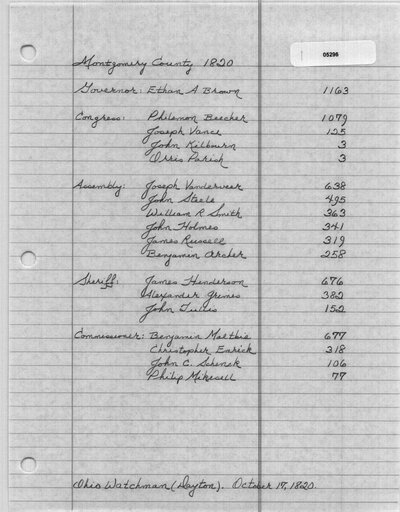 05296
Montgomery County 1820
Governor: Ethan A Brown 1163
Congress: Philemon Beecher 1079
Joseph Vance 125
John Kilbourn 3
Orris Parish 3
Assembly: Joseph Vanderveer 638
John Steele 495
William R Smith 363
John Holmes 341
James Russell 319
Benjamin Archer 258
Sheriff: James Henderson 676
Alexander Grimes 382
John 152
Commissioner: Benjamin Maltbie 677
Christopher Emrick 318
John C. Schenck 106
Philip Mikesell 77
Ohio Watchman (Dayton). October 17, 1820.